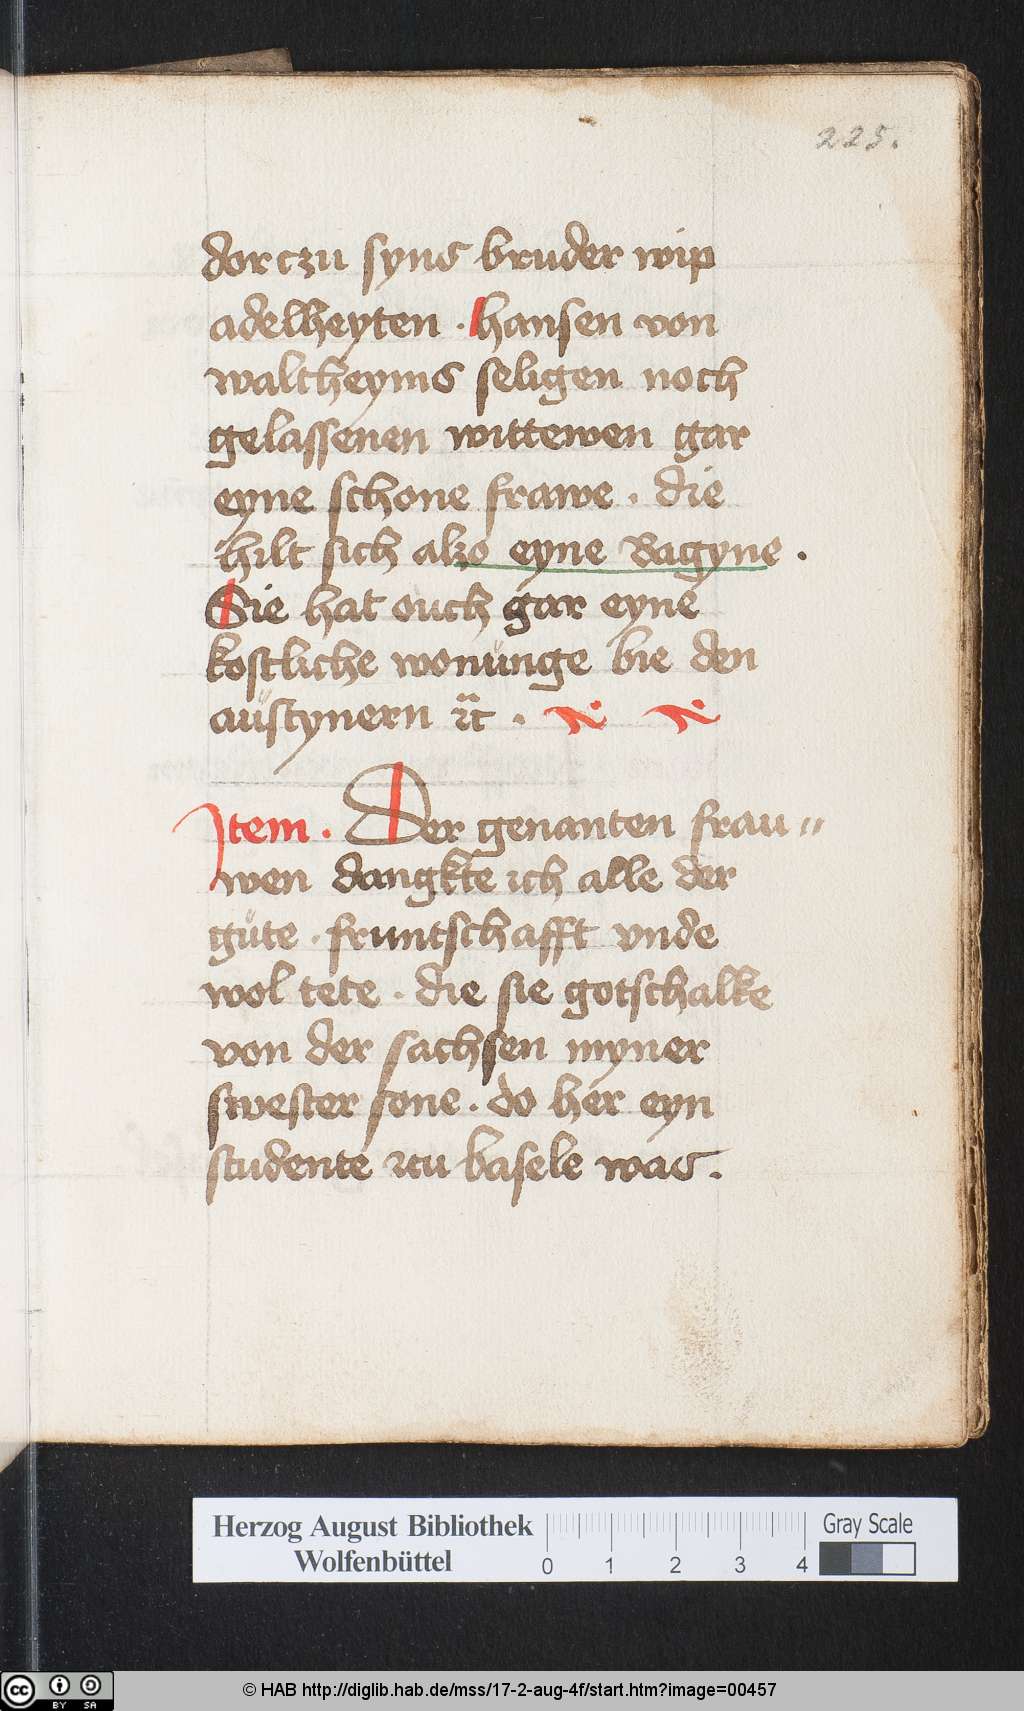 225.
dor czu syns bruder wip
adelheyten . hansen von
waltheyms seligen noch
gelassenen wittewen gar
eyne schone frawe . die
hilt sich alzo eyne Bagyne .
Sie hat ouch gar eyne
kostliche wonünge bie den
aüstynern ꝛc .
Item . Der genanten frau〃
wen dangkte ich alle der
güte . fruntschafft vnde
wol tete . die sie gotschalke
von der sachsen myner
swester sone . do her eyn
studente zcu basele was .
Herzog August Bibliothek
Wolfenbüttel
0 1 2 3 4
Gray Scale
cc BY SA
© HAB http://diglib.hab.de/mss/17-2-aug-4f/start.htm?image=00457